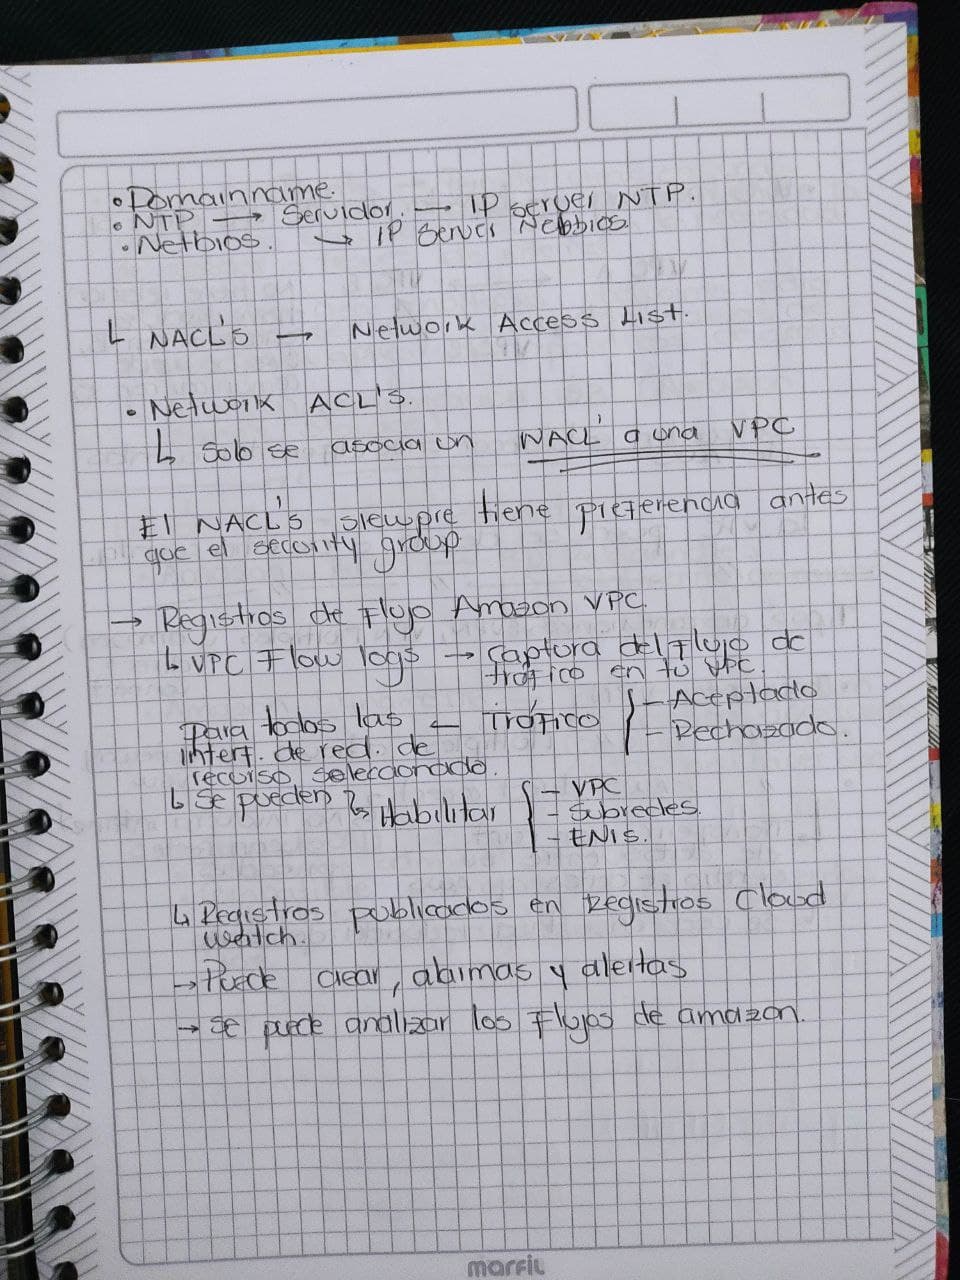 • Domain name.
• NTP → Servidor. → IP server NTP.
• Netbios. → IP Server Netbios.
↳ NACL's → Network Access List.
• Network ACL's.
↳ Solo se asocia un NACL' a una VPC
El NACL's siempre tiene preferencia antes
que el security group
→ Registros de Flujo Amazon VPC.
↳ VPC Flow logs → captura del Flujo de
tráfico en tu VPC.
Para todos las ← Tráfico { - Aceptado
- Rechazado.
interf. de red. de
recurso seleccionado.
↳ Se pueden ↳ Habilitar { - VPC
- Subredes.
- ENIS.
↳ Registros publicados en registros Cloud
Watch.
→ Puede crear, alarmas y alertas
→ Se puede analizar los Flujos de amazon.
marfil